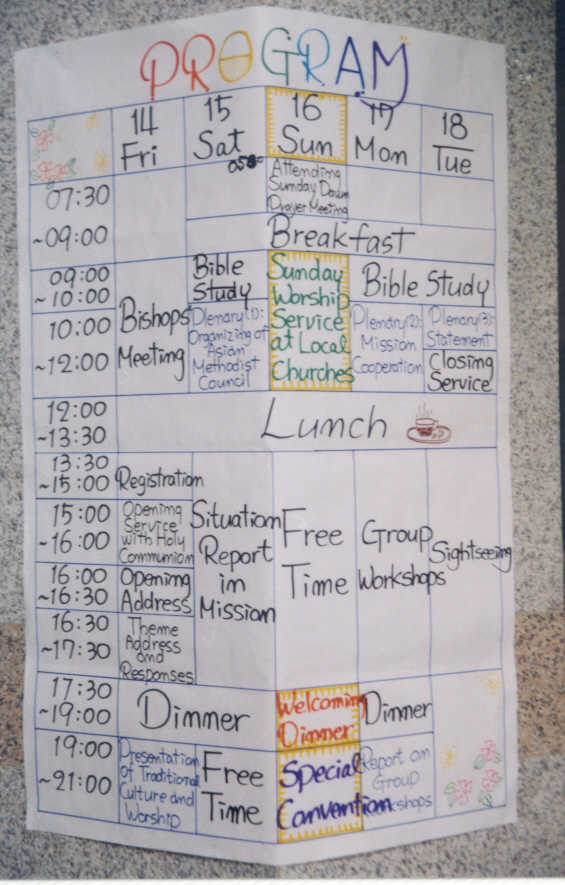 PROGRAM
14 Fri
15 Sat
16 Sun
17 Mon
18 Tue
07:30
~09:00
Attending
Sunday Dawn
Prayer Meeting
Breakfast
09:00
~10:00
Bible
Study
Sunday
Worship
Service
at Local
Churches
Bible Study
10:00
~12:00
Bishops
Meeting
Plenary(1):
Organizing of
Asian
Methodist
Council
Plenary(2):
Mission
Cooperation
Plenary(3):
Statement
Closing
Service
12:00
~13:30
Lunch
13:30
~15:00
Registration
Situation
Report
in
Mission
Free
Time
Group
Workshops
Sightseeing
15:00
~16:00
Opening
Service
with Holy
Communion
16:00
~16:30
Opening
Address
16:30
~17:30
Theme
Address
and
Responses
17:30
~19:00
Dinner
Welcoming
Dinner
Dinner
19:00
~21:00
Presentation
of Traditional
Culture and
Worship
Free
Time
Special
Convention
Report on
Group